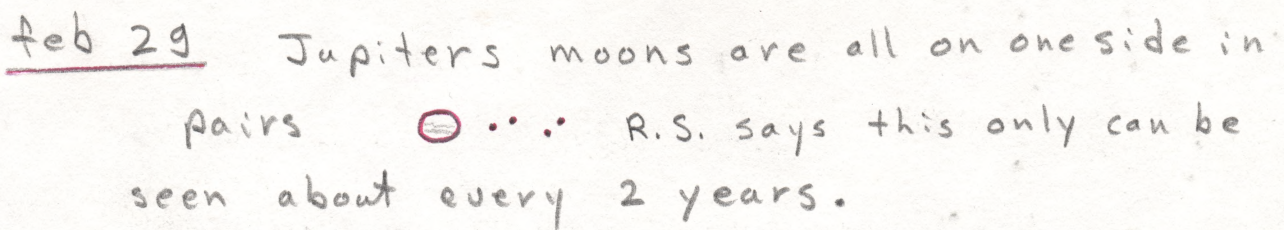 feb 29 Jupiters moons are all on one side in
pairs R.S. says this only can be
seen about every 2 years.